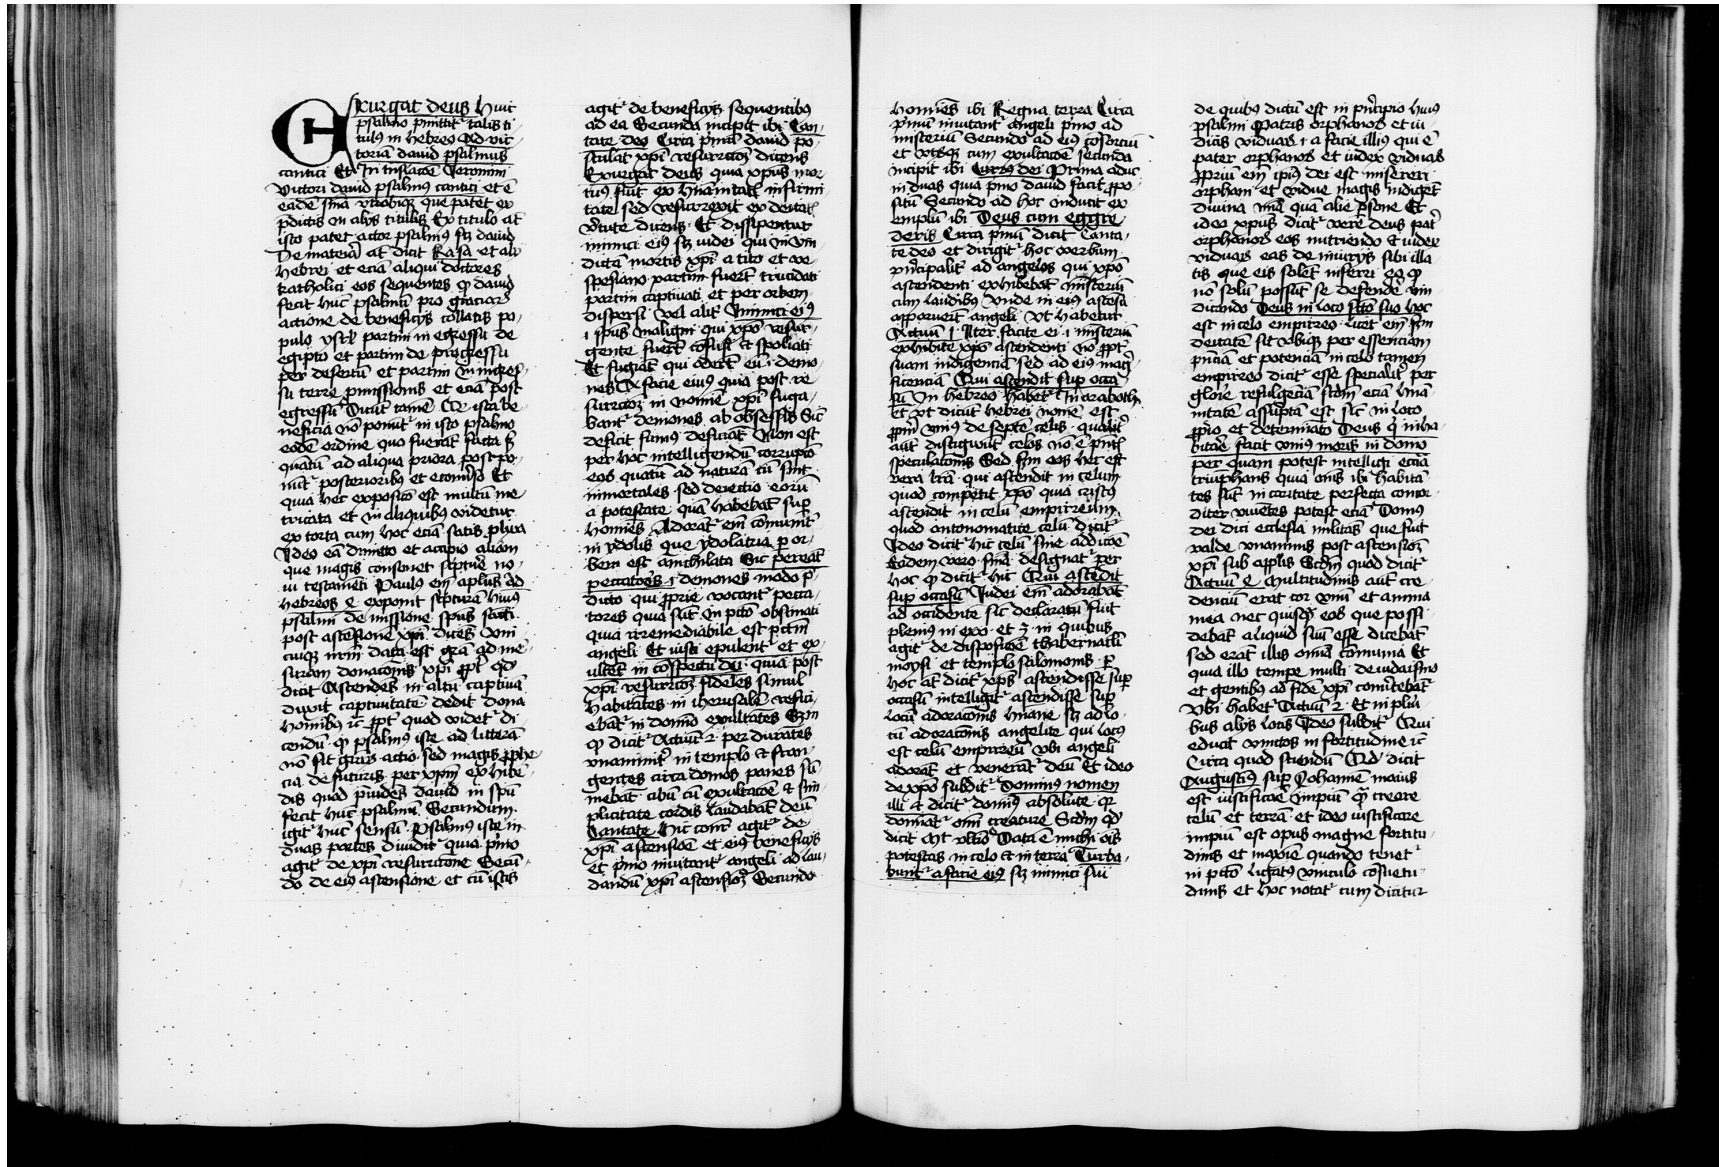 Exurgat deus huic
psalmo p̄mittit᷑ talis ti
tulus in hebreo Ad vic
toriā dauid psalmus
cantici Et in trāslacōe Jeronimi
victori dauid psalmus cantici et ē
eadē sn̄ia vtrobiqꝫ que patet ex
p̄dictis in alijs titulis Ex titulo at̄
isto patet actor psalmi sꝫ dauid
De materia at̄ dicit Rasa et alij
hebrei et eciā aliqui doctores
katholici eos sequentes qꝫ dauid
fecit hūc psalmū pro graciarꝫ
actione de beneficijs collatis po-
pulo ysrl̄ partim in egressu de
egipto et partim de progressu
per desertū et partim in ingres-
su terre p̄missionis et eciā post
egressū Dicūt tamē Qꝫ ista be-
neficia nō ponūt᷑ in isto psalmo
eodē ordine quo fuerūt facta sꝫ
quātū ad aliqua priora postpo-
nūt᷑ posterioribus et ecōuerso Et
quia hec exposicō est multū in-
tricata et in aliquibus videtur
extorta cum hoc eciā satis plixa
Ideo eā dimitto et accipio aliam
que magis consonet scpture no-
ui testamēti Paulus em̄ aplus ad
hebreos exponit scpturā huius
psalmi de missione spūs scāti
post ascēsione xp̄i dicēs Vni
cuiqꝫ nrm̄ data est grā ad mē-
suram donacōnis xp̄i ꝓpt̄ qd̄
dicit Ascendēs in altū captiuā
duxit captiuitatē dedit dona
hominibus ⁊c̄ ꝓpt̄ quod videt᷑ di-
cendū qꝫ psalmus iste ad litterā
nō sit graꝝ actio sed magis ꝓphe-
cia de futuris per xpm̄ exhibē-
dis quod p̄uidēs dauid in spū
fecit hūc psalmū Secundum
igit᷑ hūc sensū psalmus iste in
duas partes diuidit᷑ quia p̄mo
agit᷑ de xp̄i resurrectione Secū-
do de eius ascensione et cū istis
agit᷑ de beneficijs sequentibus
ad ea Secunda incipit ibi Can-
tate deo Circa p̄mā dauid po-
stulat xp̄i resurreccōꝫ dicens
Exurgat deus quia xp̄us mor-
tuus fuit ex humanitatꝭ infirmi-
tate sed resurrexit ex deitatꝭ
v̄tute dicens Et dissipentur
inimici eius sꝫ iudei qui in vin
dictā mortis xp̄i a tito et ve-
spesiano partim fuerūt trucidati
partim captiuati et per orbem
dispersi vel alit᷑ Inimici eius
.i. spūs maligni qui xp̄o resur-
gente fuerūt cōfusi et spoliati
Et fugiāt qui oderūt eū .i. demo-
nes A facie eius quia post re-
surreccōꝫ in nomē xp̄i fuga-
bant᷑ demones ab obsessis Sic
deficit fumus deficiāt Non est
per hoc intelligendū corrupcō
eos quātū ad naturā cū sint
inmortales sed deiectio eorū
a potestate quā habebāt sup̄
homines Adorāt em̄ cōmunit᷑
in ydolis que ydolatria p̄ or-
bem est annihilata Sic pereāt
peccatores .i. demones modo p̄-
dicto qui ꝓprie vocant᷑ pecca-
tores quia sūt in pctō obstinati
quia irremediabile est pctm̄
angeli Et iusti epulent᷑ et ex-
ultēt in cōspectu dei quia post
xp̄i resurreccōꝫ fideles simul
habitātes in iherusalē refici-
ebāt᷑ in domino exultātes Scdm
qꝫ dicit᷑ Actuū 2 perdurātes
vnanimit᷑ in templo et fran-
gentes circa domos panes sū-
mebāt cibū cū exultacōe et sim
plicitate cordis laudabāt deū
Cantate hic cont᷑ agit᷑ de
xp̄i ascensiōe et eius beneficijs
et p̄mo inuitant᷑ angeli ad lau-
dandū xp̄i ascensiōꝫ Secundo
homines ibi Regna terre Circa
p̄mū inuitant᷑ angeli p̄mo ad
misteriū Secundo ad eius cōsorciū
et vtrūqꝫ cum exultacōe secunda
incipit ibi Currus dei Prima adhuc
in duas quia p̄mo dauid facit ꝓpo-
sitū Secundo ad hoc inducit ex
emplū ibi Deus cum egre-
deris Circa p̄mū dicit Canta-
te deo et dirigit᷑ hoc verbum
principalit᷑ ad angelos qui xp̄o
ascendenti exhibebāt misteriū
cum laudibus Vnde in eius ascēsu
apparuerūt angeli Vt habetur
Actuū j Iter facite ei .i. misteriū
exhibite xp̄o ascendenti nō ꝓpt̄
suam indigenciā sed ad eius mag-
ficenciā Qui ascendit sup occa
sū In hebreo habet᷑ In araboth
Et vt dicūt hebrei nomē est
ꝓprm̄ vnius de septē celis qualit᷑
aūt distiguūt celos nō ē p̄ntis
speculacōnis Sed scdm eos hec est
vera lrā qui ascendit in celum
quod competit xp̄o quia cristus
ascendit in celū empireum
quod antonomatice celū dicit᷑
Ideo dicit᷑ hic celū sine addicōe
Eadem vero sn̄ia designat᷑ per
hoc qꝫ dicit᷑ hic Qui ascēdit
sup occasū Iudei em̄ adorabāt
ad occidente sic declaratū fuit
plenius in exo et 3 in quibus
agit᷑ de disposicōe thabernaclī
moysi et templo salomonis Per
hoc at̄ dicit᷑ xp̄us ascendisse sup̄
occasū intelligit᷑ ascendisse sup̄
locū adoracōnis humane sꝫ ad lo-
cū adoracōnis angelice qui locus
est celū empireū vbi angeli
adorāt et venerāt᷑ deū Et ideo
de xp̄o subdit᷑ Dominus nomen
illi et dicit᷑ dominus absolute qꝛ
domīat᷑ omī creature Scdm qd̄
dicit Mt vltīo Data ē michi oīs
potestas in celo et in terra Turba-
bunt᷑ a facie eius sꝫ inimici sui
de quibus dictū est in p̄ncipio huius
psalmi Patris orphanoꝝ et iu-
dicis viduaꝝ .i. a facie illius qui ē
pater orphanoꝝ et iudex viduaꝝ
ꝓpriū em̄ ipsius dei est misereri
orphani et vidue magis indigēt
diuina mīa quā alie p̄sone Et
ideo xp̄us dicit᷑ vere deus pat᷑
orphanoꝝ eos nutriendo et iudex
viduaꝝ eas de iniurijs sibi illa
tis que eis solēt inferri eo qꝫ
nō solū possūt se defendere vin
dicando Deus in loco scō suo hoc
est in celo empireo licet em̄ scdm
deitatē sit vbiqꝫ per essenciam
p̄nciā et potenciā in celo tamen
empireo dicit᷑ esse specialit᷑ per
glorie refulgēciā scdm eciā huma-
nitatē assūptā est sic in loco
ꝓprio et determīato Deus qui inha-
bitare facit vnius moris in domo
per quam potest intelligi eccīa
triumphans quia oms ibi habitā-
tes sūt in caritate perfecta concor-
diter viuētes potest eciā Domus
dei dici ecclesia militās que fuit
valde vnanimis post ascensiōꝫ
xp̄i sub aplis Scdm quod dicit᷑
Actuū Multitudinis aūt cre-
denciū erat cor vnū et anima
mea nec quisqꝫ eos que possi-
debāt aliquid suū esse dicebāt
sed erāt illis omīa cōmunia Et
quia illo tempe multi de iudaismo
et gentibus ad fidē xp̄i conv̄tebāt᷑
vbi habet᷑ Actuū 2 Et in pluri-
bus alijs locis Ideo subdit᷑ Qui
educit vinctos in fortitudine ⁊c̄
Circa quod sciendū Qꝫ dicit
Augustinus sup̄ Johannē maius
est iustificare impiū quā creare
celū et terrā et ideo iustificare
impiū est opus magne fortitu-
dinis et maxīe quando tenet᷑
in pctō ligatus vinculo cōsuetu-
dinis et hoc notat᷑ cum dicitur